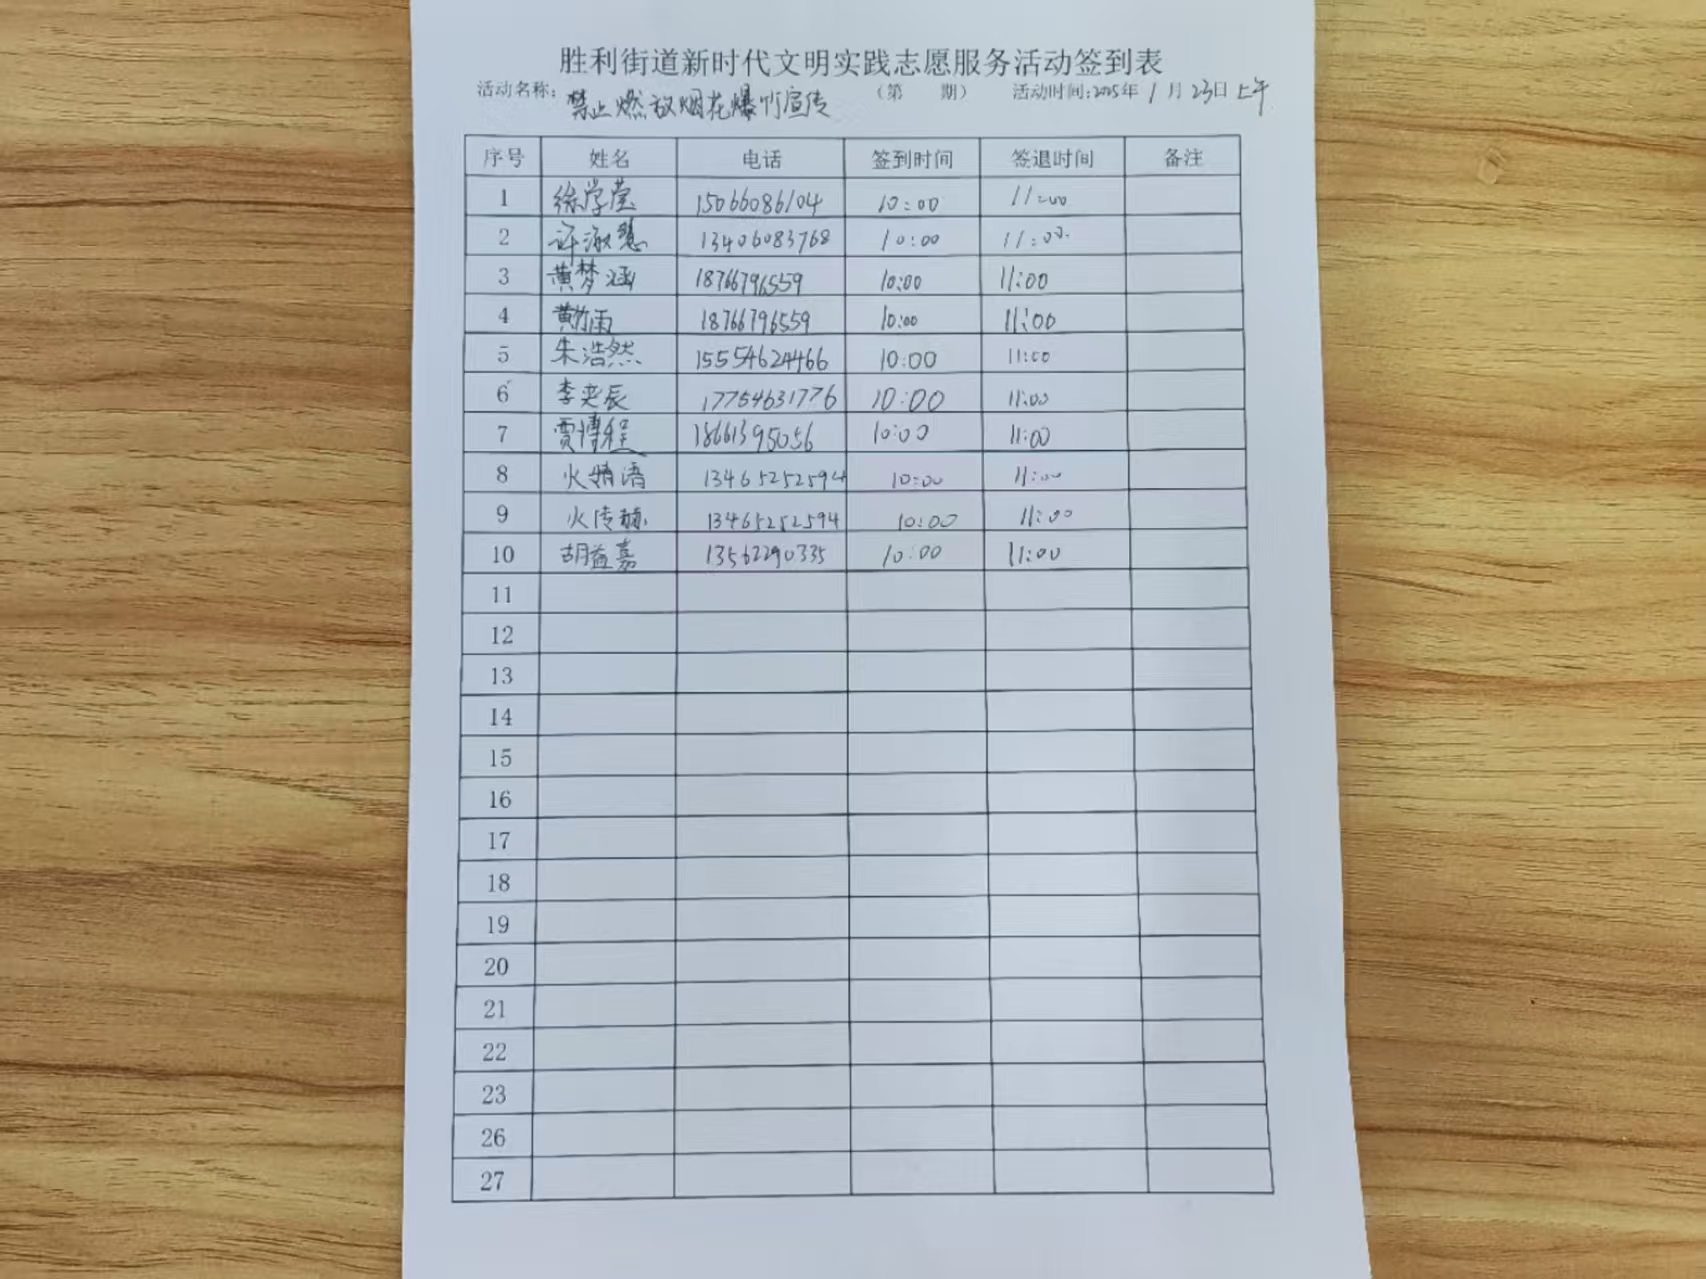 胜利街道新时代文明实践志愿服务活动签到表
活动名称: 禁止燃放烟花爆竹宣传 （第 期） 活动时间:2025年 1 月 23日 上午
序号 姓名 电话 签到时间 签退时间 备注
1 徐学莹 15066086104 10:00 11:00
2 许淑慧 13406083768 10:00 11:00
3 黄梦涵 18766796559 10:00 11:00
4 18766796559 10:00 11:00
5 朱浩然 15554624466 10:00 11:00
6 李奕辰 17754631776 10:00 11:00
7 贾博程 18661395056 10:00 11:00
8 火婧语 13465252594 10:00 11:00
9 火传赫 13465252594 10:00 11:00
10 胡益嘉 13562290335 10:00 11:00
11
12
13
14
15
16
17
18
19
20
21
22
23
26
27